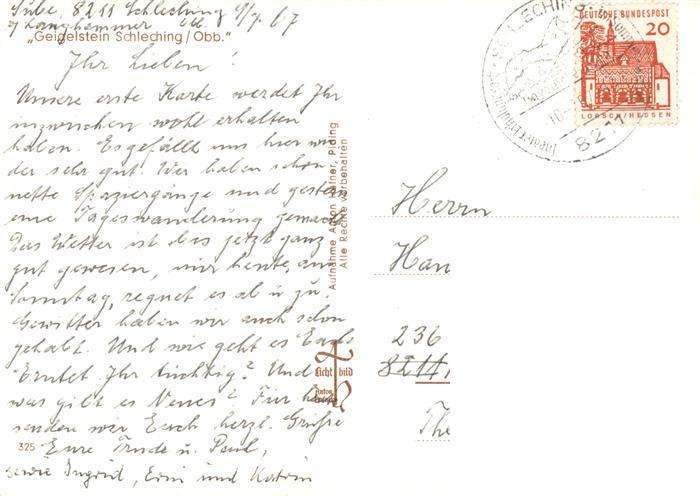 Sube, 8211 Schleching 9/7. 67
b/ Langhammer Obb.
"Geigelstein Schleching/Obb."
Ihr Lieben!
Unsere erste Karte werdet Ihr
inzwischen wohl erhalten
haben. Es gefällt uns hier wie-
der sehr gut. Wir haben schon
nette Spaziergänge und gestern
eine Tageswanderung gemacht.
Das Wetter ist bis jetzt ganz
gut gewesen, nur heute, am
Sonntag, regnet es ab u. zu.
Gewitter haben wir auch schon
gehabt. Und wie geht es Euch?
Erntet Ihr tüchtig? Und
was gibt es Neues? Für heute
senden wir Euch herzl. Grüße
Eure Trude u. Paul,
sowie Ingrid, Erni und Katrin
325
Aufnahme Anton Hafner, Piding
Alle Rechte vorbehalten
Licht bild
Anton
DEUTSCHE BUNDESPOST
20
LORSCH/HESSEN
SCHLECHING
8211
Herrn
Han
236
8211,
The